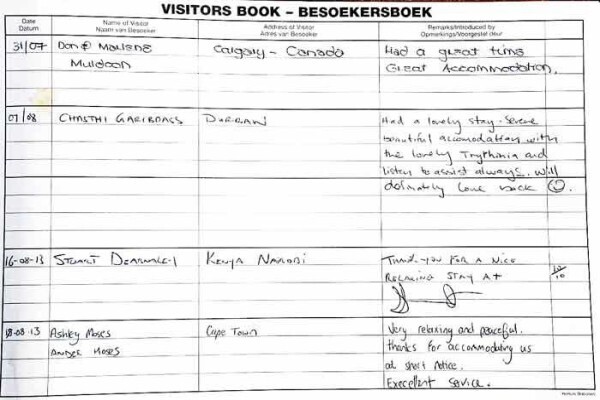 VISITORS BOOK – BESOEKERSBOEK
Date
Datum
Name of Visitor
Naam van Besoeker
Address of Visitor
Adres van Besoeker
Remarks/Introduced by
Opmerkings/Voorgestel deur
31/07
Don & Marlene
Muldoon
Calgary - Canada
Had a great time
Great Accommodation.
07/08
CHASTHI GARIBDASS
DURBAN
Had a lovely stay. Serene
beautiful accomodation with
the lovely and
listen to assist always. Will
definately come back ☺.
16-08-13
STUART
KENYA NAROBI
THANK-YOU FOR A NICE
RELAXING STAY A+
10/10
18-08-13
Ashley Moses
ANDRE MOSES
Cape Town
Very relaxing and peaceful.
thanks for accommodating us
at short notice.
Execellent service.